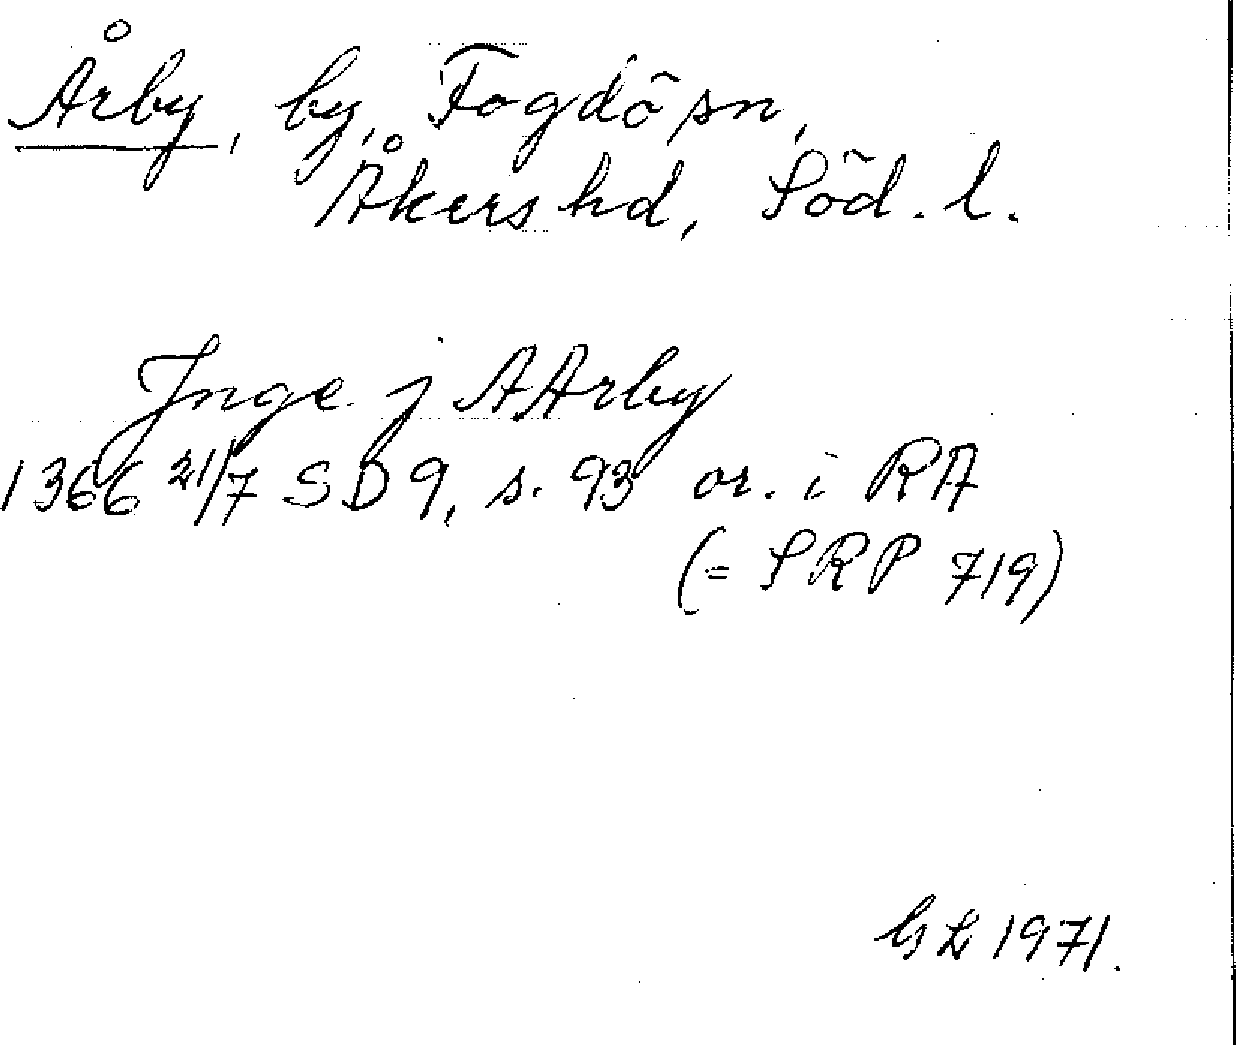 Årby, by, Fogdö sn,
Åkers hd, Söd. l.
Inge j AArby
1366 21/7 SD 9, s. 93 or. i RA
(= SRP 719)
GL 1971.